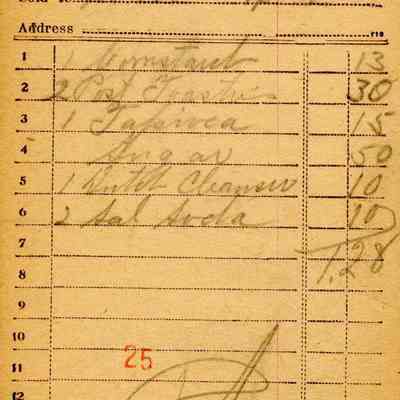 Address
1 1 Cornstarch 13
2 2 Post Toasties 30
3 1 Tapioca 15
4 Sugar 50
5 1 Dutch Cleanser 10
6 2 Sal Soda 10
7 1.28
8
9
10
25
11
12